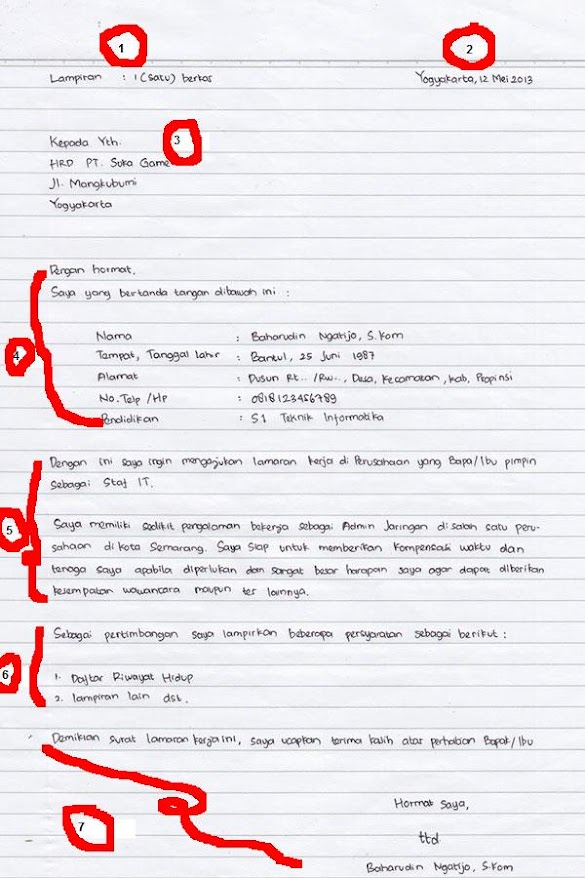 1
2
Lampiran : 1 (satu) berkas
Yogyakarta, 12 Mei 2013
Kepada Yth. 3
HRD PT. Suka Game
Jl. Mangkubumi
Yogyakarta
Dengan hormat,
Saya yang bertanda tangan dibawah ini :
4
Nama : Baharudin Ngatijo, S.Kom
Tempat, Tanggal lahir : Bantul, 25 Juni 1987
Alamat : Dusun Rt.. /Rw.., Desa, Kecamatan, Kab, Propinsi
No. Telp /HP : 0818123456789
Pendidikan : S1 Teknik Informatika
Dengan ini saya ingin mengajukan lamaran kerja di Perusahaan yang Bapa/Ibu pimpin
sebagai Staf IT.
5
Saya memiliki sedikit pengalaman bekerja sebagai Admin Jaringan di salah satu peru-
sahaan di kota Semarang. Saya siap untuk memberikan kompensasi waktu dan
tenaga saya apabila diperlukan dan sangat besar harapan saya agar dapat diberikan
kesempatan wawancara maupun tes lainnya.
Sebagai pertimbangan saya lampirkan beberapa persyaratan sebagai berikut :
6
1. Daftar Riwayat Hidup
2. lampiran lain dst.
Demikian surat lamaran kerja ini, saya ucapkan terima kasih atas perhatian Bapak/Ibu
Hormat Saya,
7
ttd
Baharudin Ngatijo, S.Kom